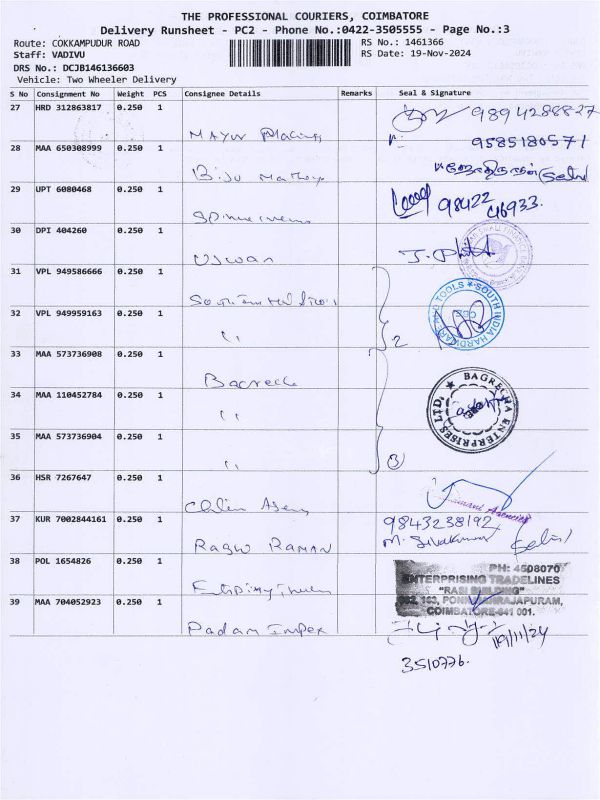 THE PROFESSIONAL COURIERS, COIMBATORE
Delivery Runsheet - PC2 - Phone No.:0422-3505555 - Page No.:3
Route: COKKAMPUDUR ROAD RS No.: 1461366
Staff: VADIVU RS Date: 19-Nov-2024
DRS No.: DCJB146136603
Vehicle: Two Wheeler Delivery
S No Consignment No Weight PCS Consignee Details Remarks Seal & Signature
27 HRD 312863817 0.250 1 9894288827
Mayur 9585180571
28 MAA 650308999 0.250 1
Biju Mathew
29 UPT 6080468 0.250 1 98422 46933.
30 DPI 404260 0.250 1
Ujwan
31 VPL 949586666 0.250 1
SOUTH INDIA HARDWARE AND TOOLS CBE
32 VPL 949959163 0.250 1
" 2
33 MAA 573736908 0.250 1
34 MAA 110452784 0.250 1 BAGRECHA ENTERPRISES LTD.
"
35 MAA 573736904 0.250 1
" 3
36 HSR 7267647 0.250 1
37 KUR 7002844161 0.250 1 9843238192
Ragu Raman M. Sivakumar
38 POL 1654826 0.250 1 PH: 4508070
ENTERPRISING TRADELINES
"RASI BUILDING"
COIMBATORE-641 001.
39 MAA 704052923 0.250 1
Padam Impex 19/11/24
3510776.